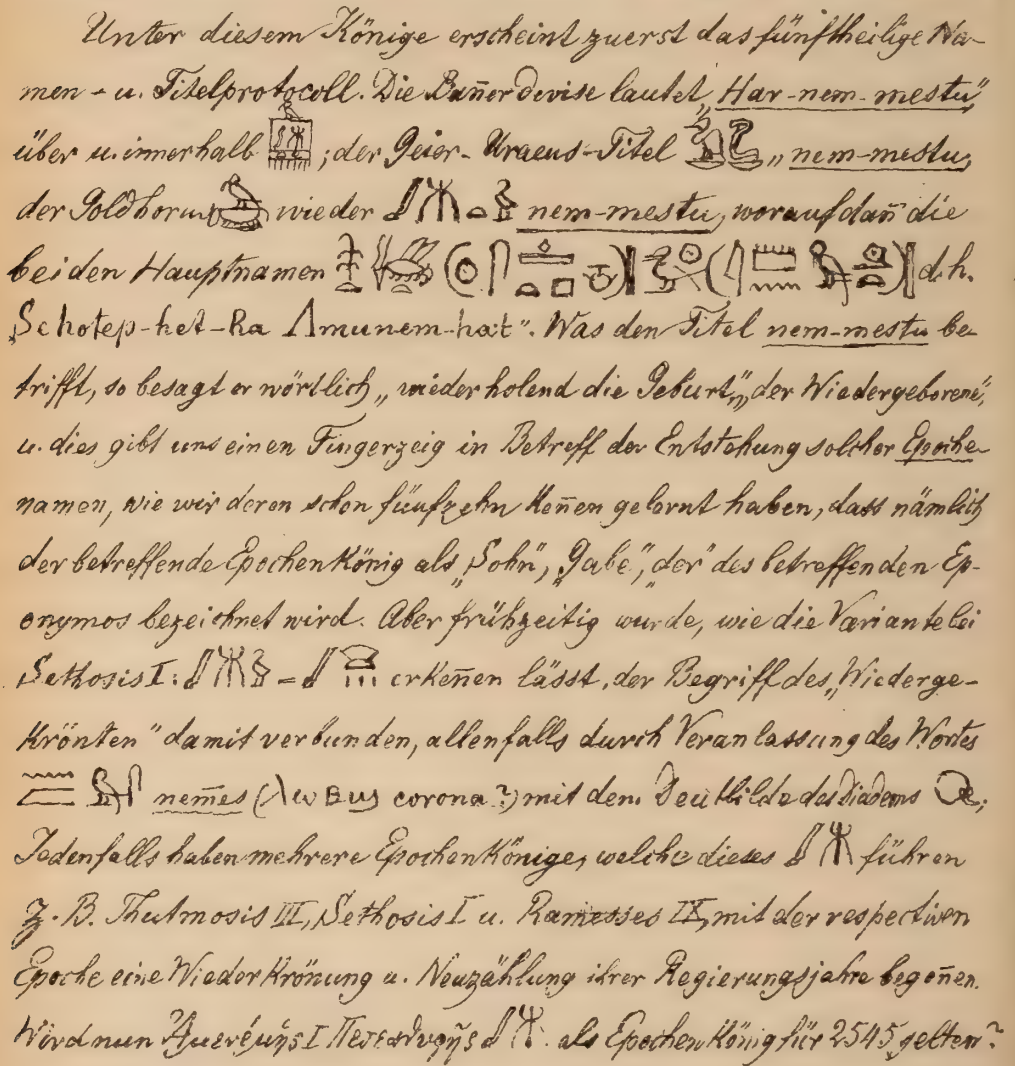 Unter diesem Könige erscheint zuerst das fünftheilige Na-
men- u. Titelprotocoll. Die Bañerdevise lautet „Har-nem-mestu"
über u. innerhalb ; der Geier-Uraeus-Titel „nem-mestu,
der Goldhorus wieder nem-mestu, worauf dañ die
beiden Hauptnamen d.h.
„Schotep-het-Ra Amunem-hat". Was den Titel nem-mestu be-
trifft, so besagt er wörtlich „wiederholend die Geburt", „der Wiedergeborene",
u. dies gibt uns einen Fingerzeig in Betreff der Entstehung solcher Epoche-
namen, wie wir deren schon fünfzehn Keñen gelernt haben, dass nämlich
der betreffende Epochenkönig als „Sohn", „Gabe", „der" des betreffenden Ep-
onymos bezeichnet wird. Aber frühzeitig wurde, wie die Variante bei
Sethosis I: – erkeñen lässt, der Begriff des „Wiederge-
krönten" damit verbunden, allenfalls durch Veranlassung des Wortes
nem̄es ( corona?) mit dem Deutbilde des Diadems ;
Jedenfalls haben mehrere Epochenkönige, welche dieses führen
z. B. Thutmosis III, Sethosis I u. Ramesses IX, mit der respectiven
Epoche eine Wiederkrönung u. Neuzählung ihrer Regierungsjahre begoñen.
Wird nun I als Epochenkönig für 2545 gelten?